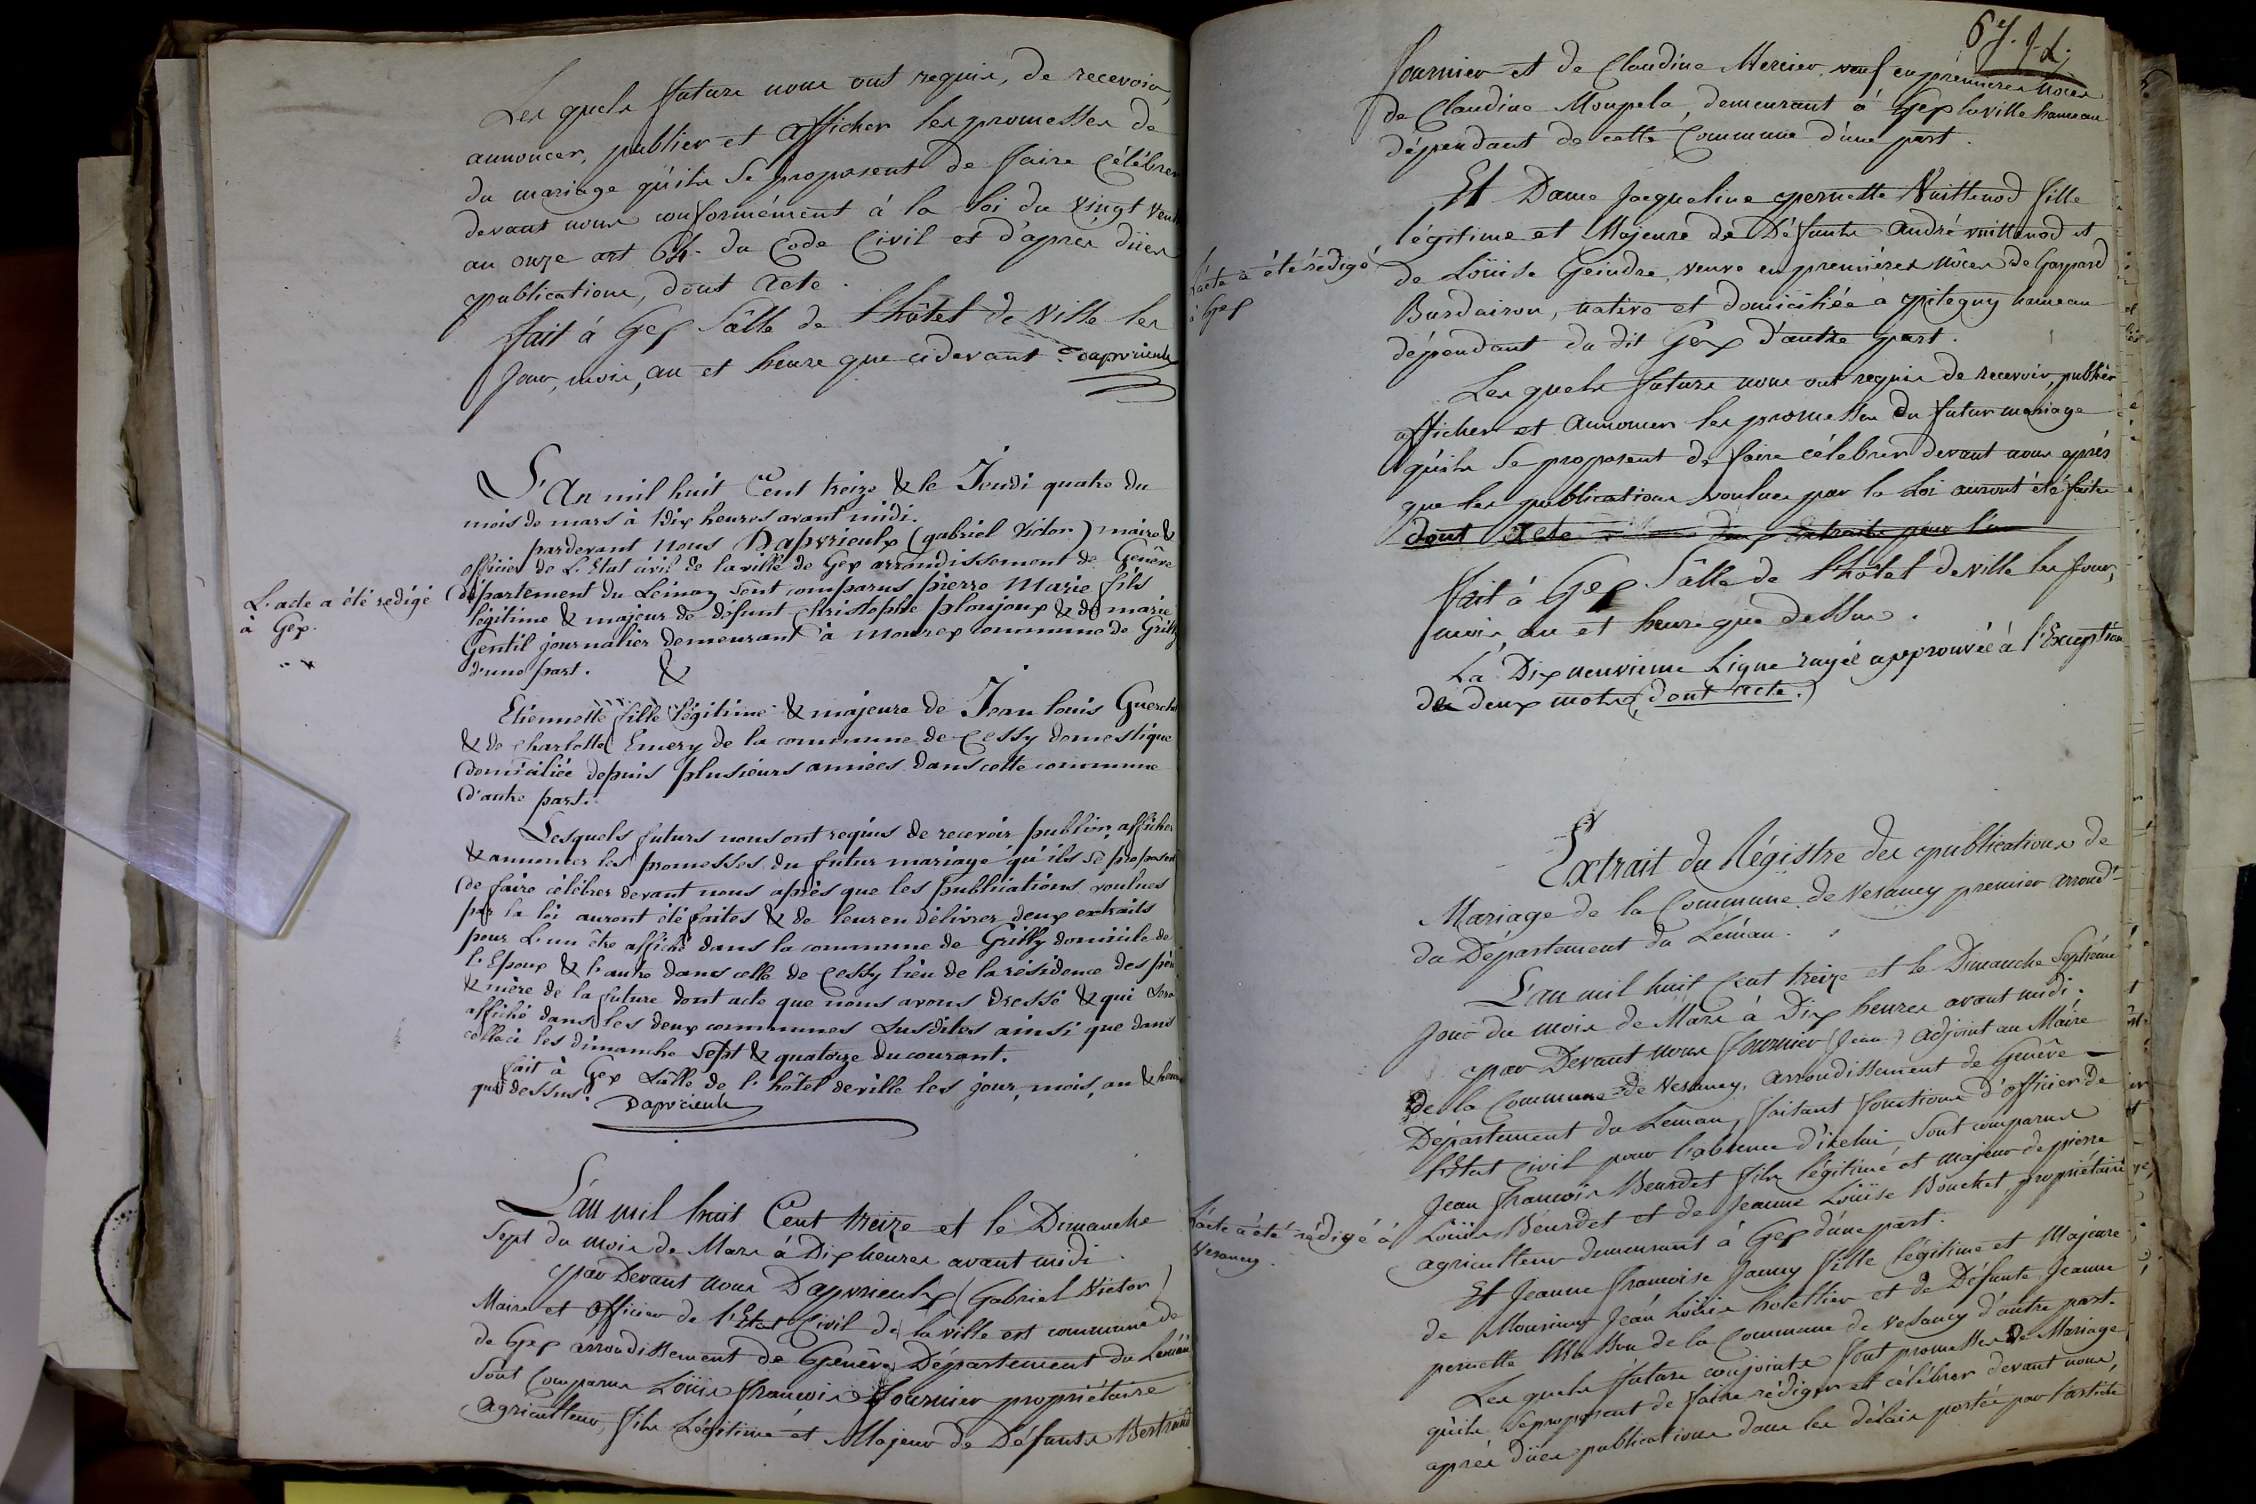 Les quels futurs nous ont requis, de recevoir,
annoncer, publier et afficher les promesses de
du mariage qu'ils se proposent de faire célébrer
devant nous conformément à la Loi du vingt vent
an onze art 64. du Code Civil et d'apres dües
publications, dont Acte.
fait à Gex Sâlle de l'hôtel de Ville les
Jour, mois, an et heure que cidevant. Daprvieulx
L'An mil huit Cent treize & le Jeudi quatre du
mois de mars à dix heures avant midi.
pardevant Nous Daprvieulx (gabriel Victor) maire &
officier de L'Etat civil de la ville de Gex arrondissement de Genêve
département du Léman sont comparus pierre Marie fils
L'acte a été redigé
à Gex.
légitime & majeur de défunt Christophe plonjoux & de marie
Gentil journalier demeurant à Mourex commune de Grilly
d'une part. &
Etiennette fille légitime & majeure de Jean louis Guerche
& de charlotte Emery de la commune de Cessy domestique
domiciliée depuis plusieurs années dans cette commune
d'autre part.
Lesquels futurs nous ont requis de recevoir publier, afficher
& annoncer les promesses du futur mariage qu'ils se proposent
de faire célébrer devant nous après que les publications voulues
par la loi auront été faites & de leur en délivrer deux extraits
pour L'un être affiché dans la commune de Grilly domicile de
l'Epoux & l'autre dans celle de Cessy lieu de la résidence des père
& mère de la future dont acte que nous avons dressé & qui sera
affiché dans les deux communes susdites ainsi que dans
celleci les dimanche sept & quatorze du courant.
fait à Gex salle de l'hôtel de ville les jour, mois, an & heure
que dessus. Daprvieulx
L'an mil huit Cent treize et le Dimanche
Sept du mois de Mars à Dix heures avant midi.
par Devant nous Daprvieulx (Gabriel Victor)
Maire et Officier de l'Etat Civil de la ville et commune de
de Gex arrondissement de Genêve Département du Léman
Sont Comparus Loüis François Fournier propriétaire
agriculteur, fils Légitime et Majeur de Défunts Bertrand
67. J. L.
Fournier et de Claudine Mercier, veuf en premieres Noces
de Claudine Monpela, demeurant à Gex la ville hameau
dépendant de cette Commune d'une part.
Et Dame Jacqueline pernette Vuittenod fille
légitime et Majeure de Défunts André vuittenod et
L'acte a été rédigé
à Gex
de Loüise Geindre, veuve en premières nôces de Gaspard
Burdairon, native et domiciliée à Pitegny hameau
dépendant du dit Gex d'autre part.
Les quels futurs nous ont requis de recevoir, publier
afficher et annoncer les promesses du futur mariage
qu'ils se proposent de faire célébrer devant nous après
que les publications voulues par la Loi auront été faites
dont Acte deux extraits pour l'un
fait à Gex Sâlle de l'hôtel de ville les jour,
mois, an et heure que dessus.
La Dix neuvieme Ligne rayée approuvée à l'Exception
des deux mots (dont acte.)
Extrait du Régistre des publications de
Mariage de la Commune de Vesancy premier arrond.t
du Département du Léman.
L'an mil huit Cent treize et le Dimanche Septieme
Jour du mois de Mars à Dix heures avant midi.
par Devant nous Fournier (Jean) adjoint au Maire
de la Commune de Vesancy, arrondissement de Genêve
Département du Léman, faisant fonctions d'officier de
l'Etat Civil pour l'absence d'icelui, Sont comparus
Jean François Beurdet fils légitime et majeur de pierre
L'acte a été rédigé à
Vesancy.
Loüis Beurdet et de Jeanne Loüise Bouchet propriétaire
agriculteur demeurant à Gex d'une part.
Et Jeanne Françoise Janny fille légitime et Majeure
de Monsieur Jean Loüis hotellier et de Défunte Jeanne
pernette de la Commune de Vesancy d'autre part.
Les quels futurs conjoints font promesses de Mariage
qu'ils se proposent de faire rédiger et célébrer devant nous,
après dües publications dans les délais portés par l'article